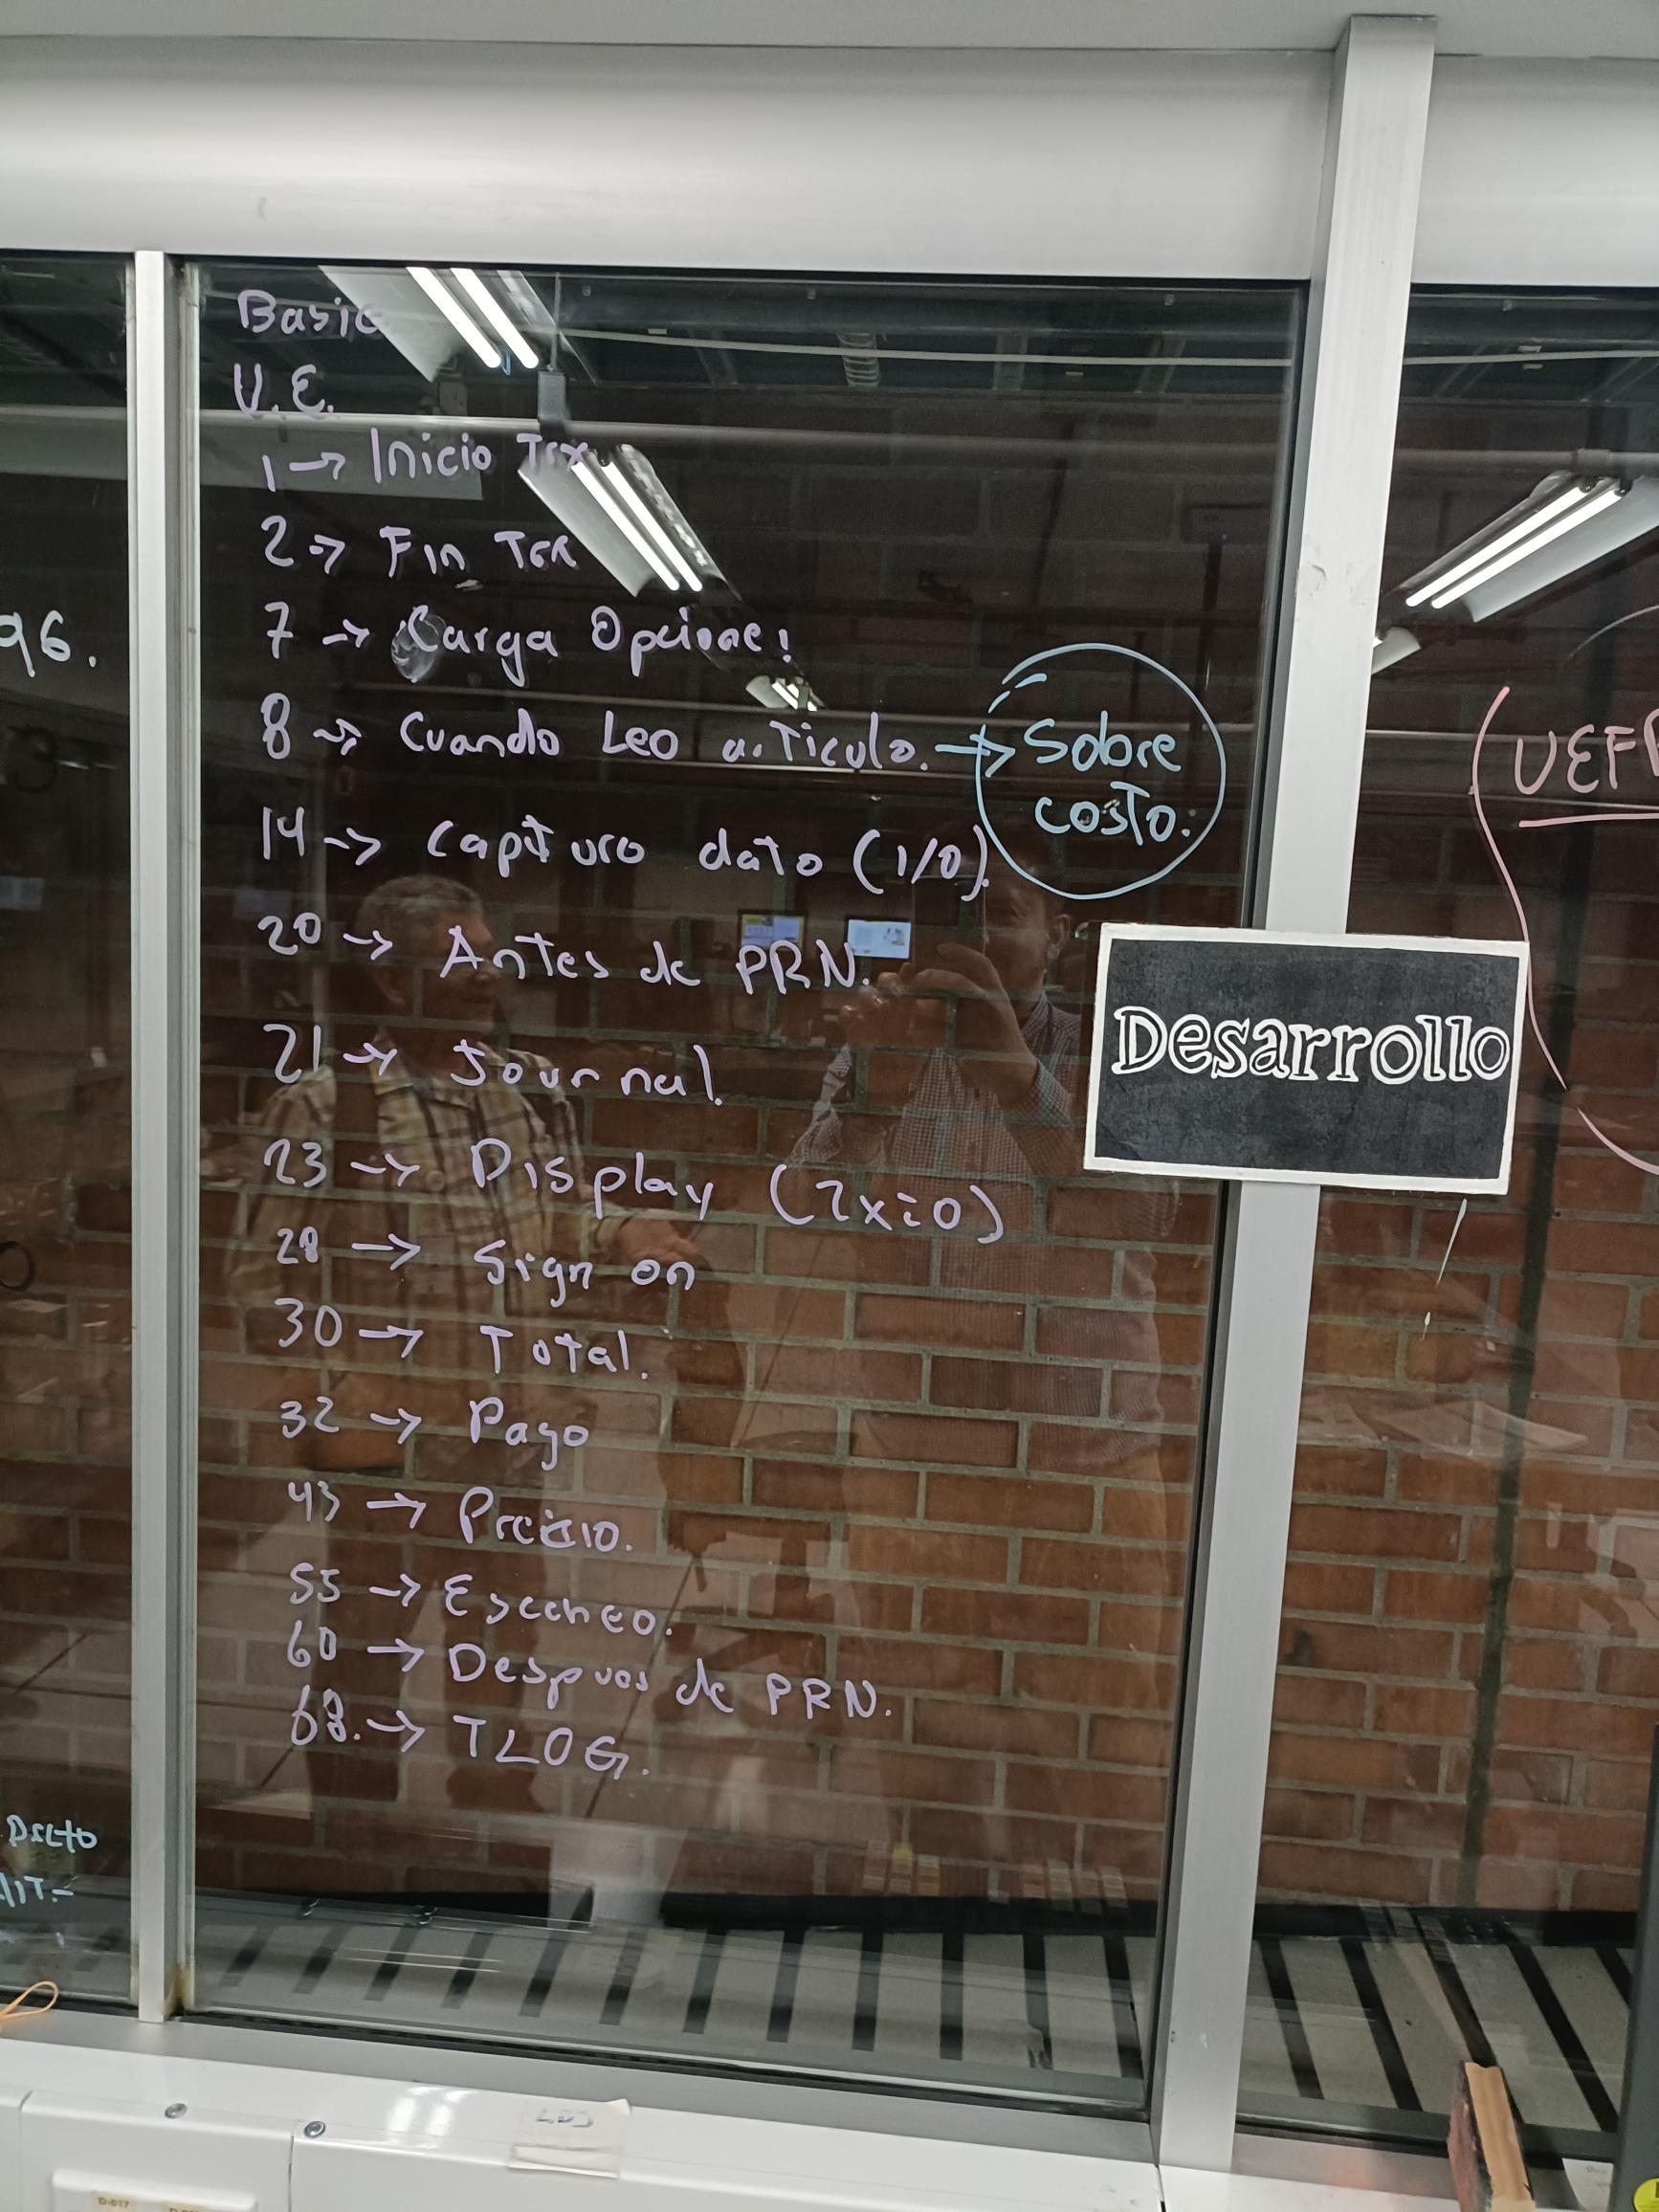 Basic
U.E.
1 → Inicio Trx
2 → Fin Trx
7 → Carga Opciones
8 → Cuando Leo articulo. → Sobre costo.
14 → Capturo dato (I/O).
20 → Antes de PRN.
21 → Journal.
23 → Display (2x20)
28 → Sign on
30 → Total.
32 → Pago
43 → Precio.
55 → Escaneo.
60 → Despues de PRN.
68. → TLOG.
Desarrollo
96.
Dscto